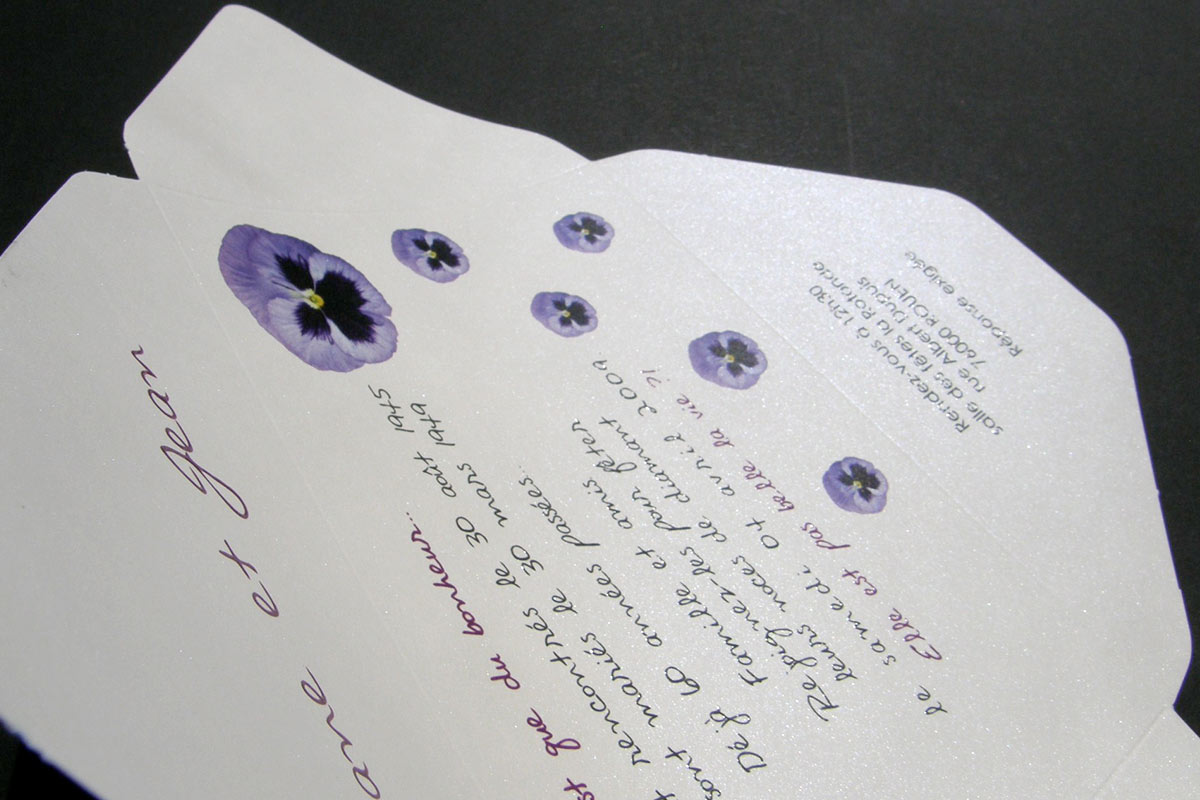 et Jean
que du bonheur...
rencontrés le 30 août 1945
sont mariés le 30 mars 1949
Déjà 60 années passées...
Famille et amis
Rejoignez-les pour fêter
leurs noces de diamant
le samedi 04 avril 2009
Elle est pas belle la vie ?!
Rendez-vous à 12h30
salle des fêtes la Rotonde
rue Albert Dupuis
76000 ROUEN
Réponse exigée